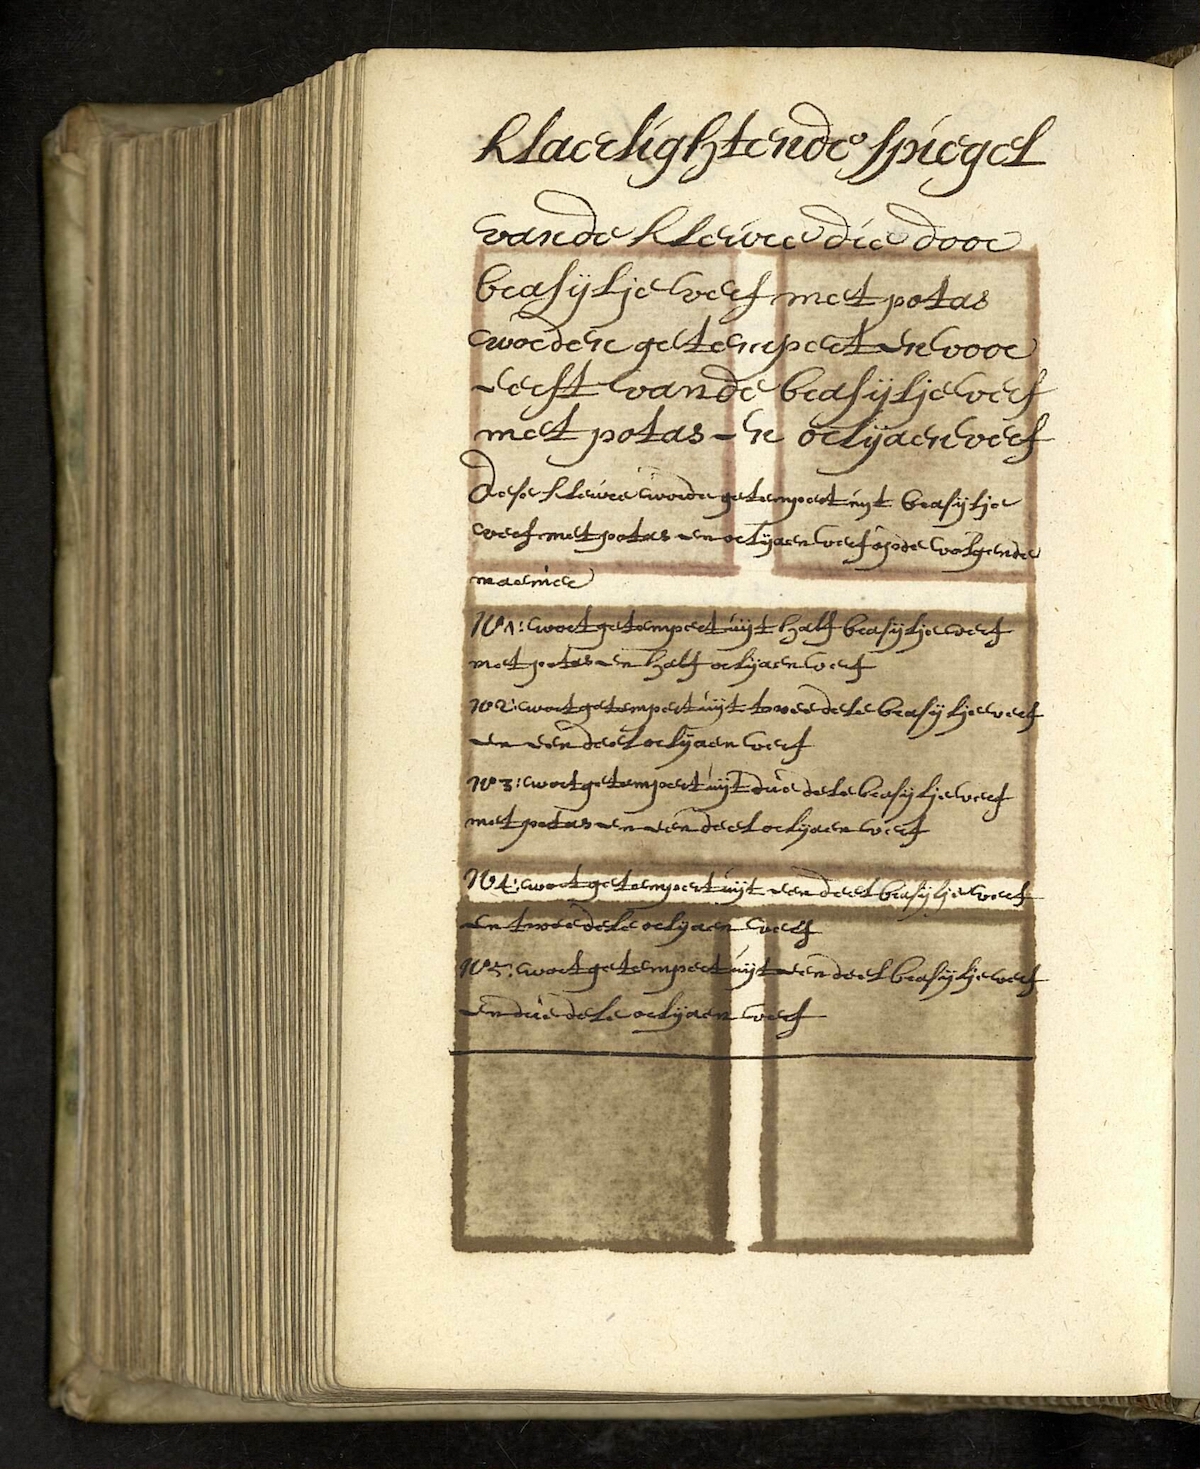 Klaerlightende Spiegel
vande kleure die door
brasijlje verf met potas
worden getempert en voor
eerst vande brasijlje verf
met potas en orlijaen verf
Dese kleure worde getempert uijt brasijlje
verf met potas en orlijaen verf op de volgende
maniere
No 1: wort getempert uijt half brasijlje verf
met potas en half orlijaen verf
No 2: wort getempert uijt twee dele brasijlje verf
en een deel orlijaen verf
No 3: wort getempert uijt drie dele brasijlje verf
met potas en een deel orlijaen verf
No 4: wort getempert uijt een deel brasijlje verf
en twee dele orlijaen verf
No 5: wort getempert uijt een deel brasijlje verf
en drie dele orlijaen verf